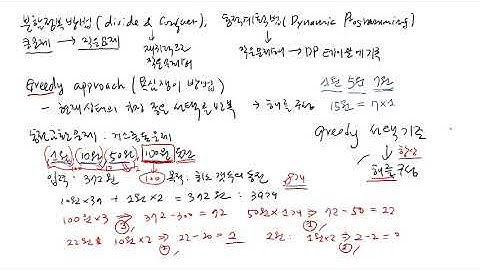 분할정복방법 (divide & Conquer), 동적계획법 (Dynamic Programming)
큰문제 → 작은문제
재귀적으로
작은문제해
작은문제해 → DP 테이블에 기록
Greedy approach (욕심쟁이 방법)
1원 5원 7원
- 현재상태의 가장 좋은 선택을 반복 → 해를 구성
15원 = 7×1
동전교환문제 : 거스름돈문제
Greedy 선택기준
1원, 10원, 50원, 100원 동전
해를 구성
입력 : 372원
100
목적 : 최소 갯수의 동전
10원×37 + 1원×2 = 372원 : 39개
100원×3 ⇒ 372-300 = 72
50원×1개 ⇒ 72-50 = 22
22원을 10원×2 ⇒ 22-20 = 2
2원 : 1원×2 ⇒ 2-2 = 0